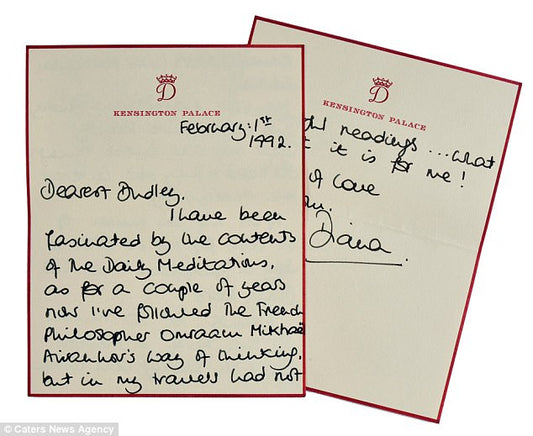 D
KENSINGTON PALACE
February: 1st
1992.
Dearest Dudley,
I have been
fascinated by the contents
of the Daily Meditations,
as for a couple of years
now I've followed the French
Philosopher Omraam Mikhaë
Aivanhov's way of thinking,
but in my travels had not
D
KENSINGTON PALACE
readings ... what
it is for me!
of love
Diana
© Caters News Agency